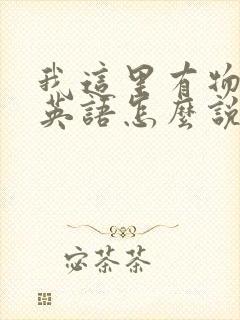 我這里有物
英語怎麼說
宓茶茶